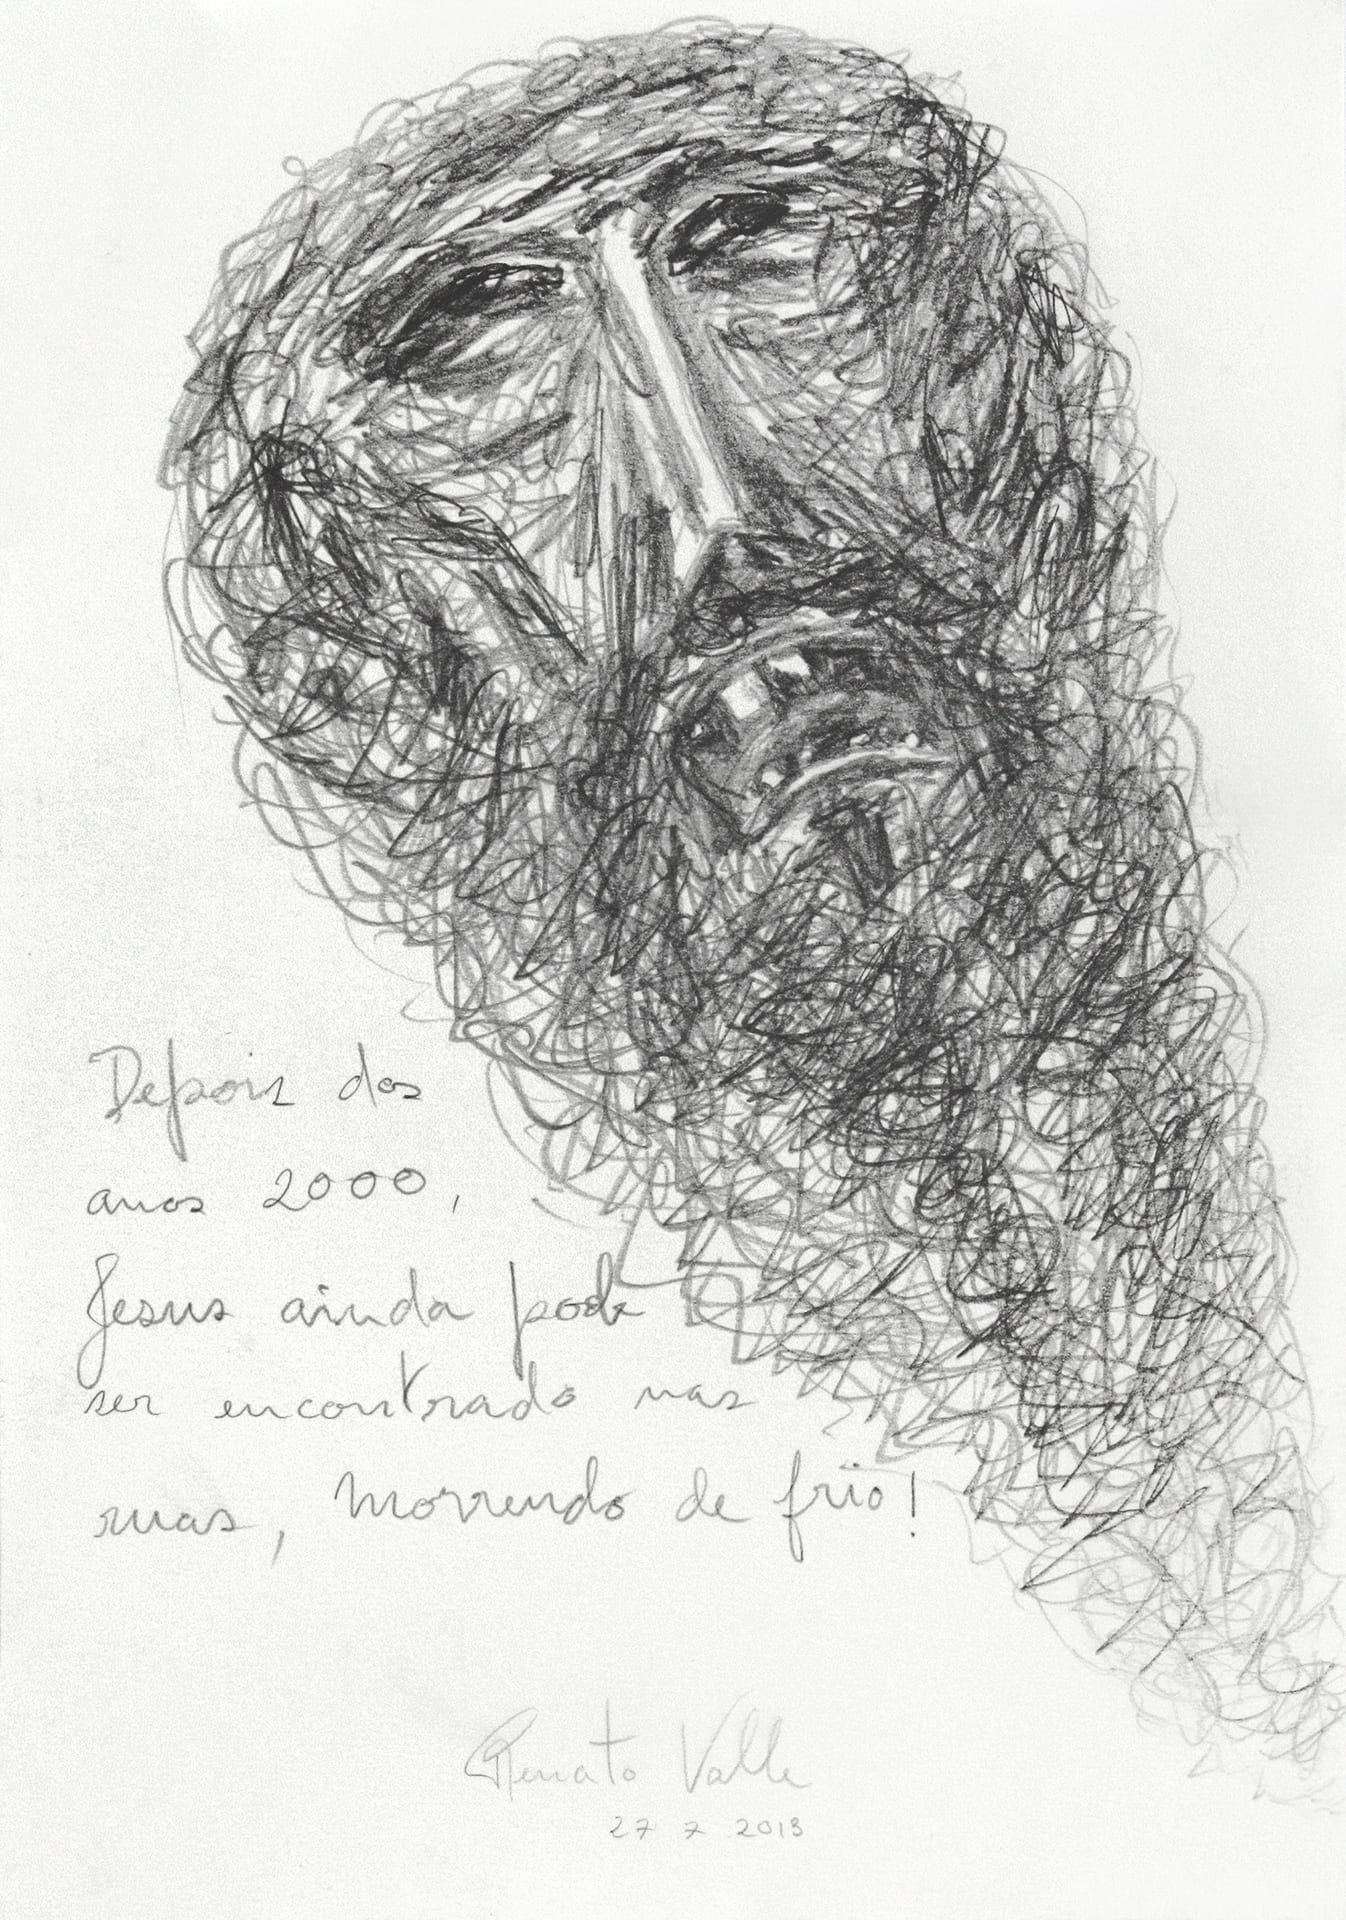 Depois dos
anos 2000,
Jesus ainda pode
ser encontrado nas
ruas, morrendo de frio!
Renato Valle
27 7 2013